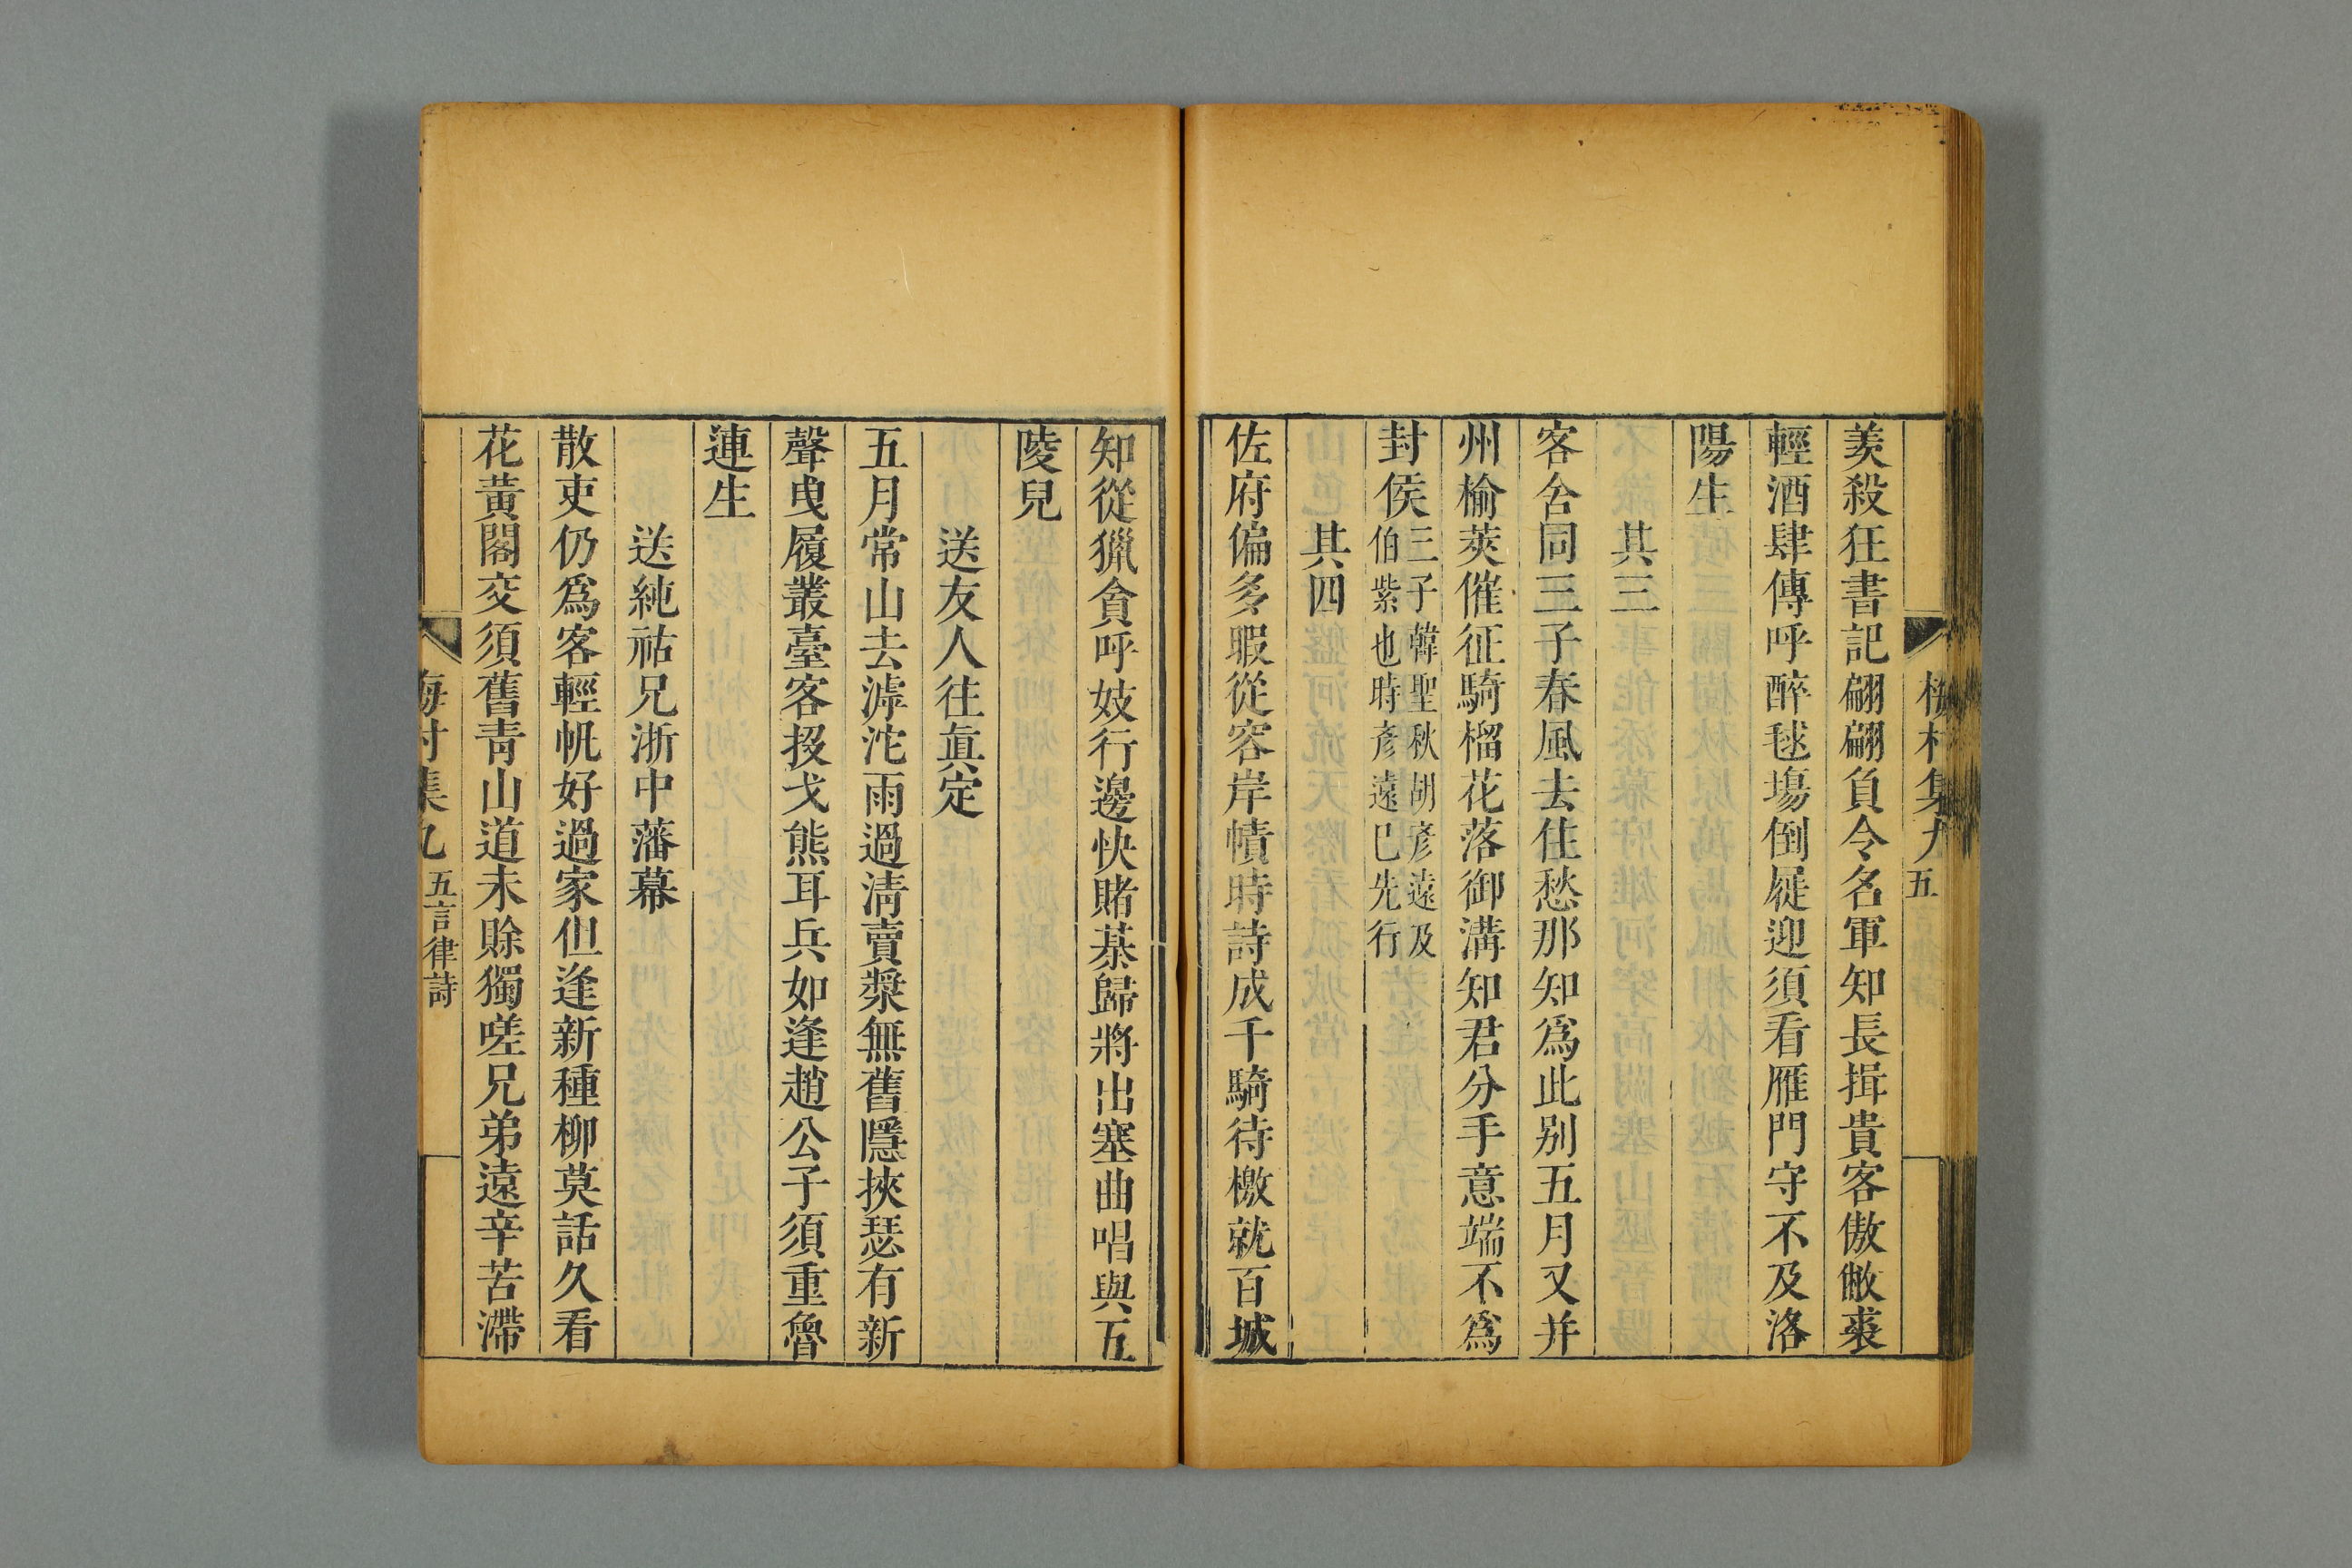 梅村集九 五
羨殺狂書記翩翩負令名軍知長揖貴客傲敝裘
輕酒肆傳呼醉毬塲倒屣迎須看雁門守不及洛
陽生
其三
客舍同三子春風去住愁那知爲此別五月又并
州榆莢催征騎榴花落御溝知君分手意端不爲
封侯三子韓聖秋胡彥遠及
伯紫也時彥遠已先行
其四
佐府偏多暇從容岸幘時詩成千騎待檄就百城
知從獵貪呼妓行邊快賭棊歸將出塞曲唱與五
陵兒
送友人往眞定
五月常山去滹沱雨過淸賣漿無舊隱挾瑟有新
聲曳履叢臺客投戈熊耳兵如逢趙公子須重魯
連生
送純祜兄浙中藩幕
散吏仍爲客輕帆好過家但逢新種柳莫話久看
花黃閣交須舊靑山道未賖獨嗟兄弟遠辛苦滯
梅村集九 五言律詩